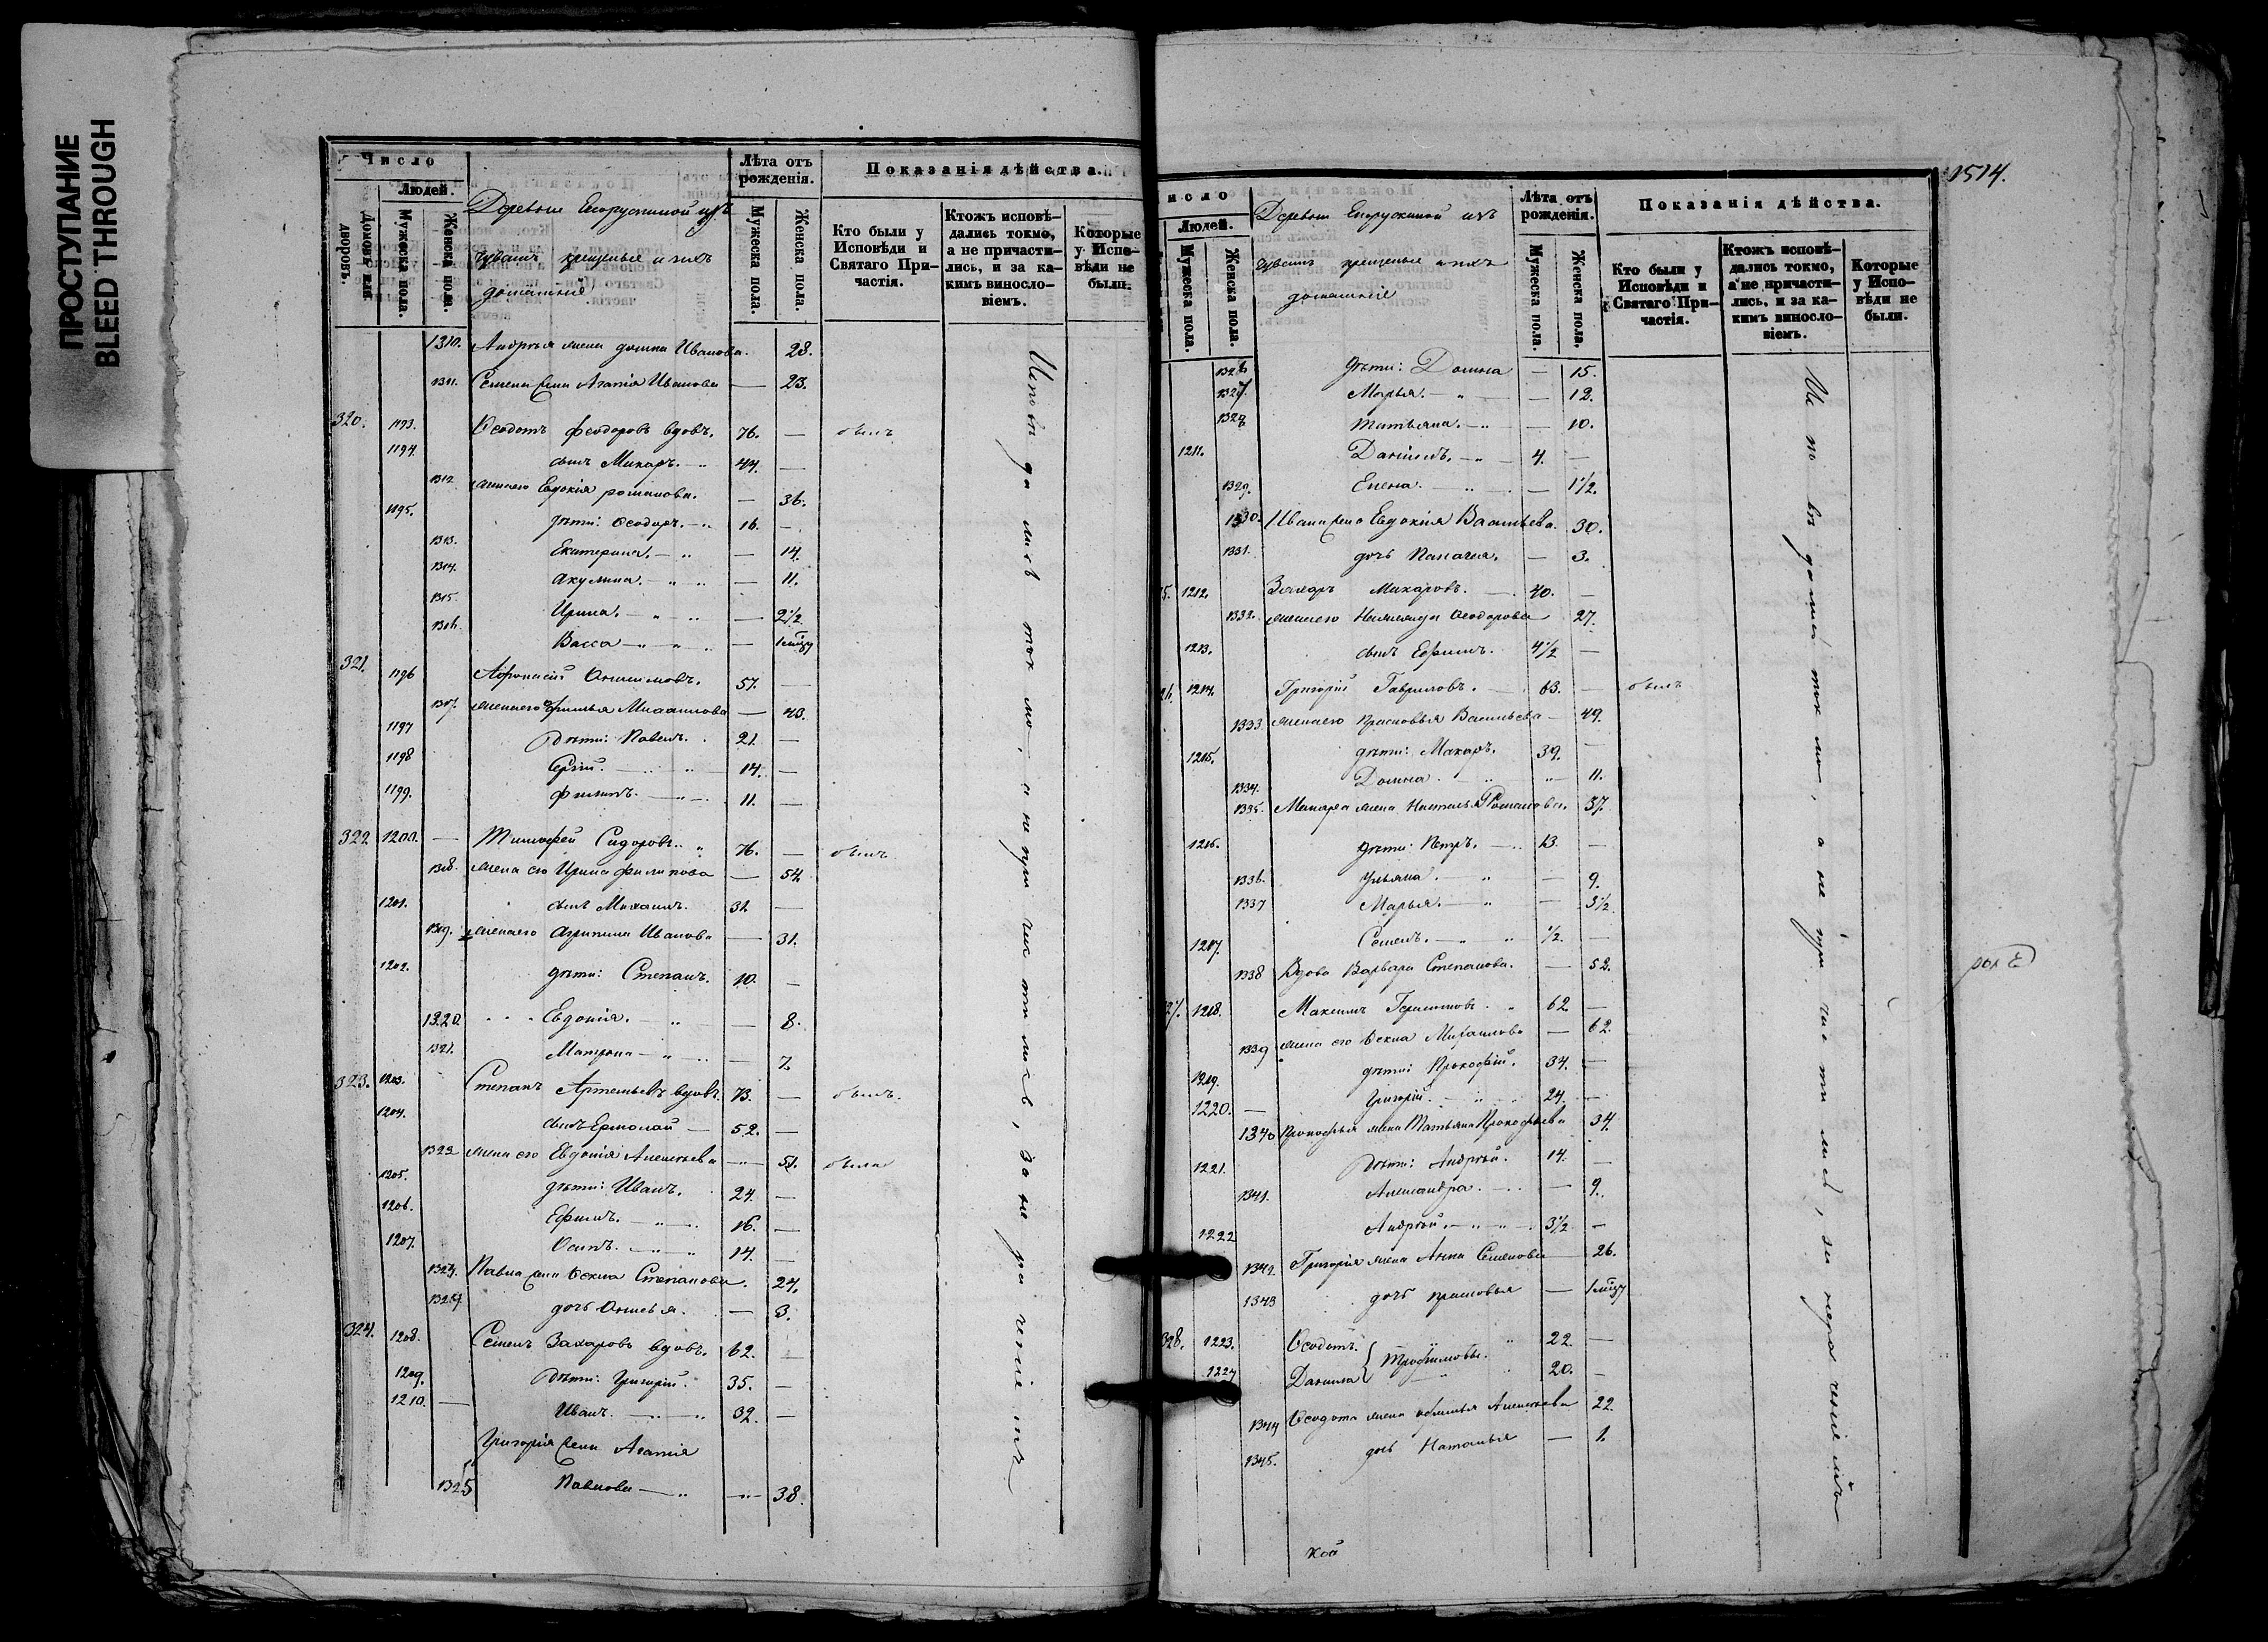 ПРОСТУПАНИЕ
BLEED THROUGH
Число
Людей.
Домовъ или дворовъ.
Мужеска пола.
Женска пола.
Деревни
чувашъ крещеные и ихъ
домашніе
Лѣта отъ рожденія.
Мужеска пола.
Женска пола.
Показанія дѣйства.
Кто были у Исповѣди и Святаго Причастія.
Ктожъ исповѣдались токмо, а не причастились, и за какимъ винословіемъ.
Которые у Исповѣди не были.
1310. Андрея жена Домна Иванова. 28.
1311. Семена жена Агапія Иванова — 23.
320. 1193. Ѳеодотъ Феодоровъ вдовъ. 76. — былъ
1194. сынъ Макаръ. — " 44. —
1312 жена его Евдокія Романова. — 36.
1195. дѣти: Ѳеодоръ. — " 16. —
1313. Екатерина. — " — 14.
1314. Акулина. — " " — 11.
1315. Ирина. — " " — 2 1/2
1316. Васса — " " " —
321. 1196 Афонасій Онисимовъ. 57. —
1317. жена его — 43.
1197 Дѣти: Павелъ. 21. —
1198 Сергій. — " " 14. —
1199. Филипъ. — " — 11. —
322 1200. — Тимофей Сидоровъ. " 76. — былъ
1318. жена его Ирина Филипова — 54
1201. сынъ Михаилъ. 31. —
1319. жена его Агрипина Иванова — 31.
1202. дѣти: Степанъ. 10. —
1320. Евдокія. — " — 8.
1321. Матрона — " " — 7.
323. 1203. Степанъ Артемьевъ вдовъ. 73. — былъ.
1204. сынъ Ермолай — 52. —
1322 жена его Евдокія Алексѣева — 51. была
1205. дѣти: Иванъ. 24. —
1206. Ефимъ. — " — 16. —
1207. Осипъ. — " " 14. —
1323. Павла жена Ѳекла Степанова. 24.
1324. дочь — 3.
324. 1208. Семенъ Захаровъ вдовъ. 62. —
1209. Дѣти: Григорій. 35. —
1210. — Иванъ. — " " 32. —
Григорія жена Агапія
1325 Павлова — " — 38.
Исповѣдались токмо, а не причастились, за нераченіемъ
1514.
исло
Людей.
Мужеска пола.
Женска пола.
Деревни
чувашъ крещеные и ихъ
домашніе
Лѣта отъ рожденія.
Мужеска пола.
Женска пола.
Показанія дѣйства.
Кто были у Исповѣди и Святаго Причастія.
Ктожъ исповѣдались токмо, а не причастились, и за какимъ винословіемъ.
Которые у Исповѣди не были.
1326 дѣти: Домна — 15.
1327. Марья. — " — 12.
1328 Татьяна. — " — 10.
1211. Даніилъ. — " — 4. —
1329. Елена. — " — 1 1/2.
1330. Ивана жена Евдокія Васильева. 30.
1331. дочь Палагея. — 3.
5. 1212. Захаръ Макаровъ. — 40. —
1332. жена его Ѳеодорова 27.
1213. сынъ Ефимъ. 4 1/2 —
26. 1214. Григорій Гавриловъ. — 63. — былъ
1333 жена его Прасковья Васильева — 49.
1215. дѣти: Макаръ. 39. —
1334. Домна. — " " 11.
1335. Макара жена Наталья Романова. 37.
1216. дѣти: Петръ. — 13. —
1336. Ульяна. — " — 9.
1337 Марья. — " — 3 1/2
1217. Семенъ. — " " 1/2. —
1338 Вдова Варвара Степанова. — 52.
27. 1218. Максимъ Герасимовъ. " 62 —
1339 жена его Ѳекла Михаилова — 62.
1219. дѣти: Прокофій. 34. —
1220. — Григорій. — " " 24. —
1340 Прокофья жена Татьяна Прокофьева 34.
1221. Дѣти: Андрей. 14. —
1341. Александра. — " — 9.
1222 Андрей. — " " 3 1/2 —
1342 Григорія жена Анна Семенова — 26.
1343 дочь Прасковья —
328. 1223. Ѳеодотъ. " 22. —
1224 Данила } Трофимовы. " 20. —
1344 Ѳеодота жена Алексѣева 22.
1345. дочь Наталья — 1.
Исповѣдались токмо, а не причастились, за нераченіемъ
кой